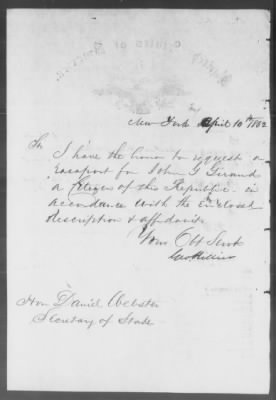 New York April 10th 1852
Sir
I have the honor to request a
Passport for John G Giraud
a Citizen of this Republic in
accordance with the Enclosed
description & affidavit
Your Obt Servt
Hon Daniel Webster
Secretary of State